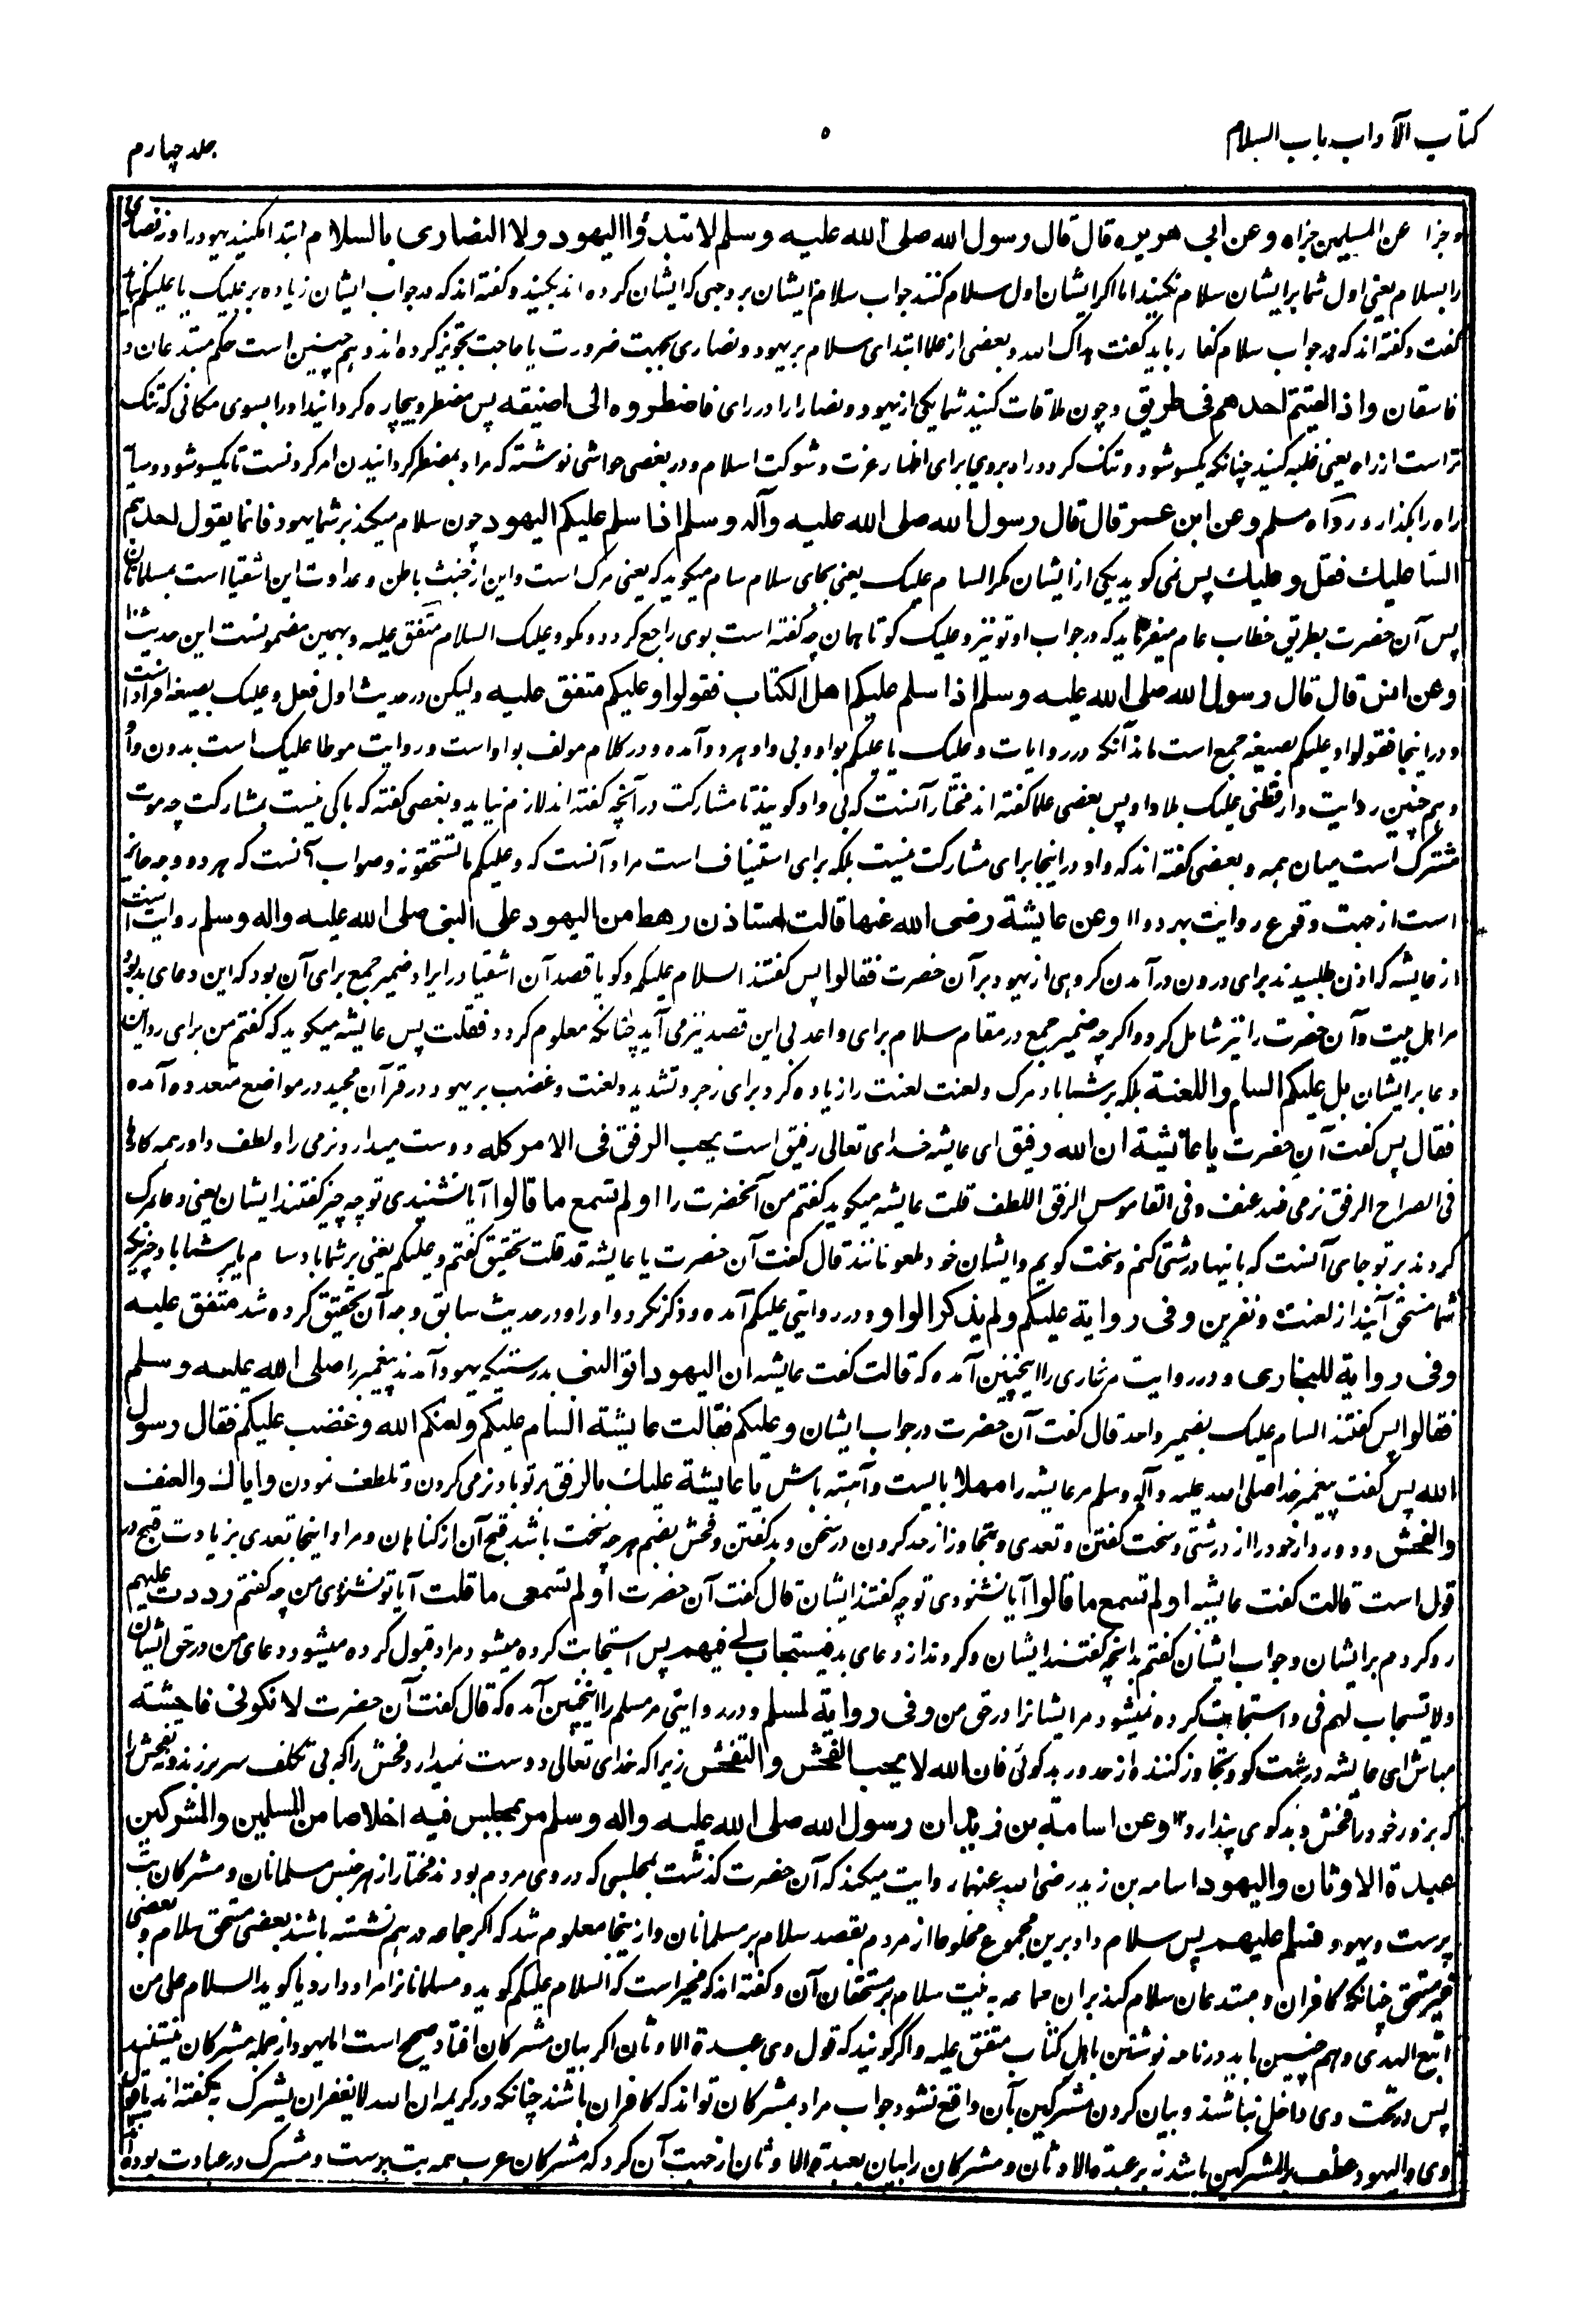 کتاب الآداب باب السلام
۵
جلد چهارم
و جزا عن المسلمین جزاه وعن ابی هریره قال قال رسول الله صلی الله علیه وسلم لا تبدؤا الیهود ولا النصاری بالسلام ابتدا مکنید یهود را و نه نصاری
را بسلام یعنی اول شما بر ایشان سلام نکنید اما اگر ایشان اول سلام کنند جواب سلام ایشان بر وجهی که ایشان کرده اند بکنید و گفته اند که در جواب ایشان زیاده بر علیک یا علیکم نباید
گفت و گفته اند که در جواب سلام کفار باید گفت هداک الله و بعضی از علما ابتدای سلام بر یهود و نصاری بجهت ضرورت یا حاجت تجویز کرده اند و هم چنین است حکم مبتدعان و
فاسقان واذا لقیتم احدهم فی طریق و چون ملاقات کنید شما یکی از یهود و نصارا را در راهی فاضطروه الی اضیقه پس مضطر و بیچاره گردانید او را بسوی مکانی که تنگ
تر است از راه یعنی غلبه کنید چنانکه یکسو شود و تنگ گردد راه بروی برای اظهار عزت و شوکت اسلام و در بعضی حواشی نوشته که مراد بمضطر گردانیدن امر کردنست تا یکسو شود و میانه
راه را بگذارد رواه مسلم وعن ابن عمر قال قال رسول الله صلی الله علیه وآله وسلم اذا سلم علیکم الیهود چون سلام میکند بر شما یهود فانما یقول احدهم
السام علیک فقل وعلیک پس نمی گوید یکی از ایشان مگر السام علیک یعنی بجای سلام سام میگوید که یعنی مرگ است و این از خبث باطن و عداوت این اشقیا است بمسلمانان
پس آن حضرت بطریق خطاب عام میفرماید که در جواب او تو نیز وعلیک گو تا همان چه گفته است بوی راجع گردد و مگو وعلیک السلام متفق علیه و بهمین مضمونست این حدیث
وعن انس قال قال رسول الله صلی الله علیه وسلم اذا سلم علیکم اهل الکتاب فقولوا وعلیکم متفق علیه ولیکن در حدیث اول فقل وعلیک بصیغه افراد است
و در اینجا فقولوا وعلیکم بصیغه جمع است بدانکه در روایات وعلیک یا علیکم بواو و بی واو هر دو آمده و در کلام مولف بواو است و روایت موطا علیک است بدون واو
و هم چنین روایت دارقطنی علیک بلا واو پس بعضی علما گفته اند مختار آنست که بی واو گویند تا مشارکت در آنچه گفته اند لازم نیاید و بعضی گفته که باکی نیست بمشارکت چه موت
مشترک است میان همه و بعضی گفته اند که واو در اینجا برای مشارکت نیست بلکه برای استیناف است مراد آنست که وعلیکم ما تستحقونه و صواب آنست که هر دو وجه جائز
است از جهت وقوع روایت بهر دو ۱۱ وعن عایشة رضی الله عنها قالت استاذن رهط من الیهود علی النبی صلی الله علیه واله وسلم روایت است
از عایشه که اذن طلبیدند برای درون در آمدن گروهی از یهود بر آن حضرت فقالوا پس گفتند السلام علیکم و گویا قصد آن اشقیا در ایراد ضمیر جمع برای آن بود که این دعای بد بود
مر اهل بیت و آن حضرت را نیز شامل گردد و اگر چه ضمیر جمع در مقام سلام برای واحد بی این قصد نیز می آید چنانکه معلوم گردد فقلت پس عایشه میگوید که گفتم من برای رد این
دعا بر ایشان بل علیکم السام واللعنة بلکه بر شما باد مرگ و لعنت لعنت را زیاده کرد برای زجر و تشدید و لعنت و غضب بر یهود در قرآن مجید در مواضع متعدده آمده
فقال پس گفت آن حضرت یا عائشة ان الله رفیق ای عایشه خدای تعالی رفیق است یحب الرفق فی الامر کله دوست میدارد نرمی را و لطف در همه کارها
فی الصراح الرفق نرمی ضد عنف و فی القاموس الرفق اللطف قلت عایشه میگوید گفتم من آنحضرت را اولم تسمع ما قالوا آیا نشنیدی تو چه چیز گفتند ایشان یعنی دعا مرگ
کردند بر تو جای آنست که با اینها درشتی کنم و سخت گویم و ایشان خود ملعونانند قال گفت آن حضرت یا عایشه قد قلت تحقیق گفتم وعلیکم یعنی بر شما باد سام یا بر شما باد چیزیکه
شما مستحق آنید از لعنت و نفرین وفی روایة علیکم ولم یذکر الواو و در روایتی علیکم آمده و ذکر نکرد واو را و در حدیث سابق وجه آن تحقیق کرده شد متفق علیه
وفی روایة للبخاری و در روایت مر بخاری را اینچنین آمده که قالت گفت عایشه ان الیهود اتوا النبی بدرستیکه یهود آمدند پیغمبر را صلی الله علیه وسلم
فقالوا پس گفتند السام علیک بضمیر واحد قال گفت آن حضرت در جواب ایشان وعلیکم فقالت عایشة السام علیکم ولعنکم الله وغضب علیکم فقال رسول
الله پس گفت پیغمبر خدا صلی الله علیه وآله وسلم مر عایشه را مهلا بایست و آهسته باش یا عایشة علیک بالرفق بر تو باد نرمی کردن و تلطف نمودن وایاک والعنف
والفحش و دور دار خود را از درشتی و سخت گفتن و تعدی و تجاوز از حد کردن در سخن و بد گفتن و فحش بضم هر چه سخت باشد قبح آن از گناهان و مراد اینجا تعدی بزیادت قبح در
قول است قالت گفت عایشه اولم تسمع ما قالوا آیا نشنودی تو چه گفتند ایشان قال گفت آن حضرت أولم تسمعی ما قلت آیا تو نشنوی من چه گفتم رددت علیهم
رد کردم بر ایشان و جواب ایشان گفتم بدانچه گفتند ایشان و کردند از دعای بد فیستجاب لی فیهم پس استجابت کرده میشود مراد قبول کرده میشود دعای من در حق ایشان
ولا یستجاب لهم فی و استجابت کرده نمیشود مر ایشانرا در حق من وفی روایة لمسلم و در روایتی مر مسلم را اینچنین آمده که قال گفت آن حضرت لا تکونی فاحشة
مباش ای عایشه درشت گو و تجاوز کننده از حد و بدگوئی فان الله لا یحب الفحش والتفحش زیرا که خدای تعالی دوست نمیدارد فحش را که بی تکلف سر برزند و نه تفحش را
که بزور خود را فحش و بدگوی پندارد ۱۲ وعن اسامة بن زید ان رسول الله صلی الله علیه واله وسلم مر بمجلس فیه اخلاط من المسلمین والمشرکین
عبدة الاوثان والیهود اسامه بن زید رضی الله عنهما روایت میکند که آن حضرت گذشت بمجلسی که در وی مردم بودند مختلط از هر جنس مسلمانان و مشرکان بت
پرست و یهود فسلم علیهم پس سلام داد بر این مجموع مخلوط از مردم بقصد سلام بر مسلمانان و از اینجا معلوم شد که اگر جماعه در هم نشسته باشند بعضی مستحق سلام و بعضی
غیر مستحق چنانکه کافران و مبتدعان سلام کند بر آن جماعه به نیت سلام بر مستحقان آن و گفته اند که مخیر است که السلام علیکم گوید و مسلمانانرا مراد دارد یا گوید السلام علی من
اتبع الهدی و هم چنین باید در نامه نوشتن باهل کتاب متفق علیه و اگر گویند که قول وی عبدة الاوثان اگر بیان مشرکان افتاد صحیح است اما یهود از جمله مشرکان نیستند
پس در تحت وی داخل نباشند و بیان کردن مشرکین بآن واقع نشود جواب مراد بمشرکان تواند که کافران باشند چنانکه در کریمه ان الله لا یغفر ان یشرک به گفته اند یا قول
وی والیهود عطف بر المشرکین باشد نه بر عبدة الاوثان و مشرکان را بیان بعبدة الاوثان از جهت آن کرد که مشرکان عرب همه بت پرست و مشرک در عبادت بودند